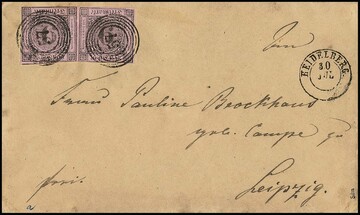 HEIDELBERG.
30
JUL
Frau Pauline Brockhaus
geb. Campe
frei.
Leipzig.